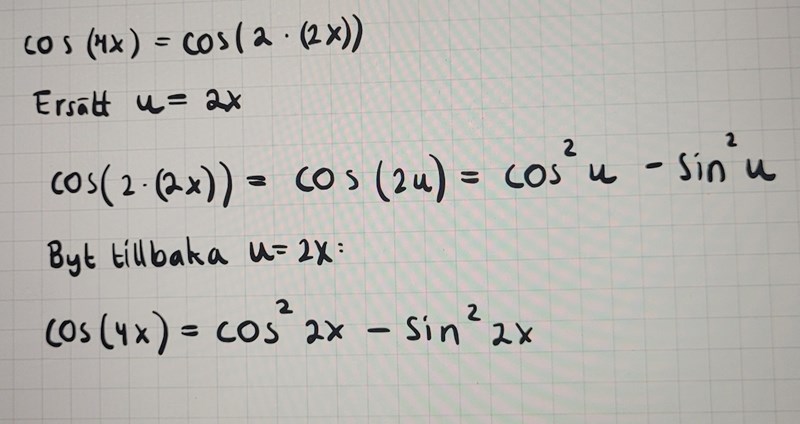 cos(4x) = cos(2 · (2x))
Ersätt u = 2x
cos(2·(2x)) = cos(2u) = cos² u - sin² u
Byt tillbaka u = 2x:
cos(4x) = cos² 2x - sin² 2x